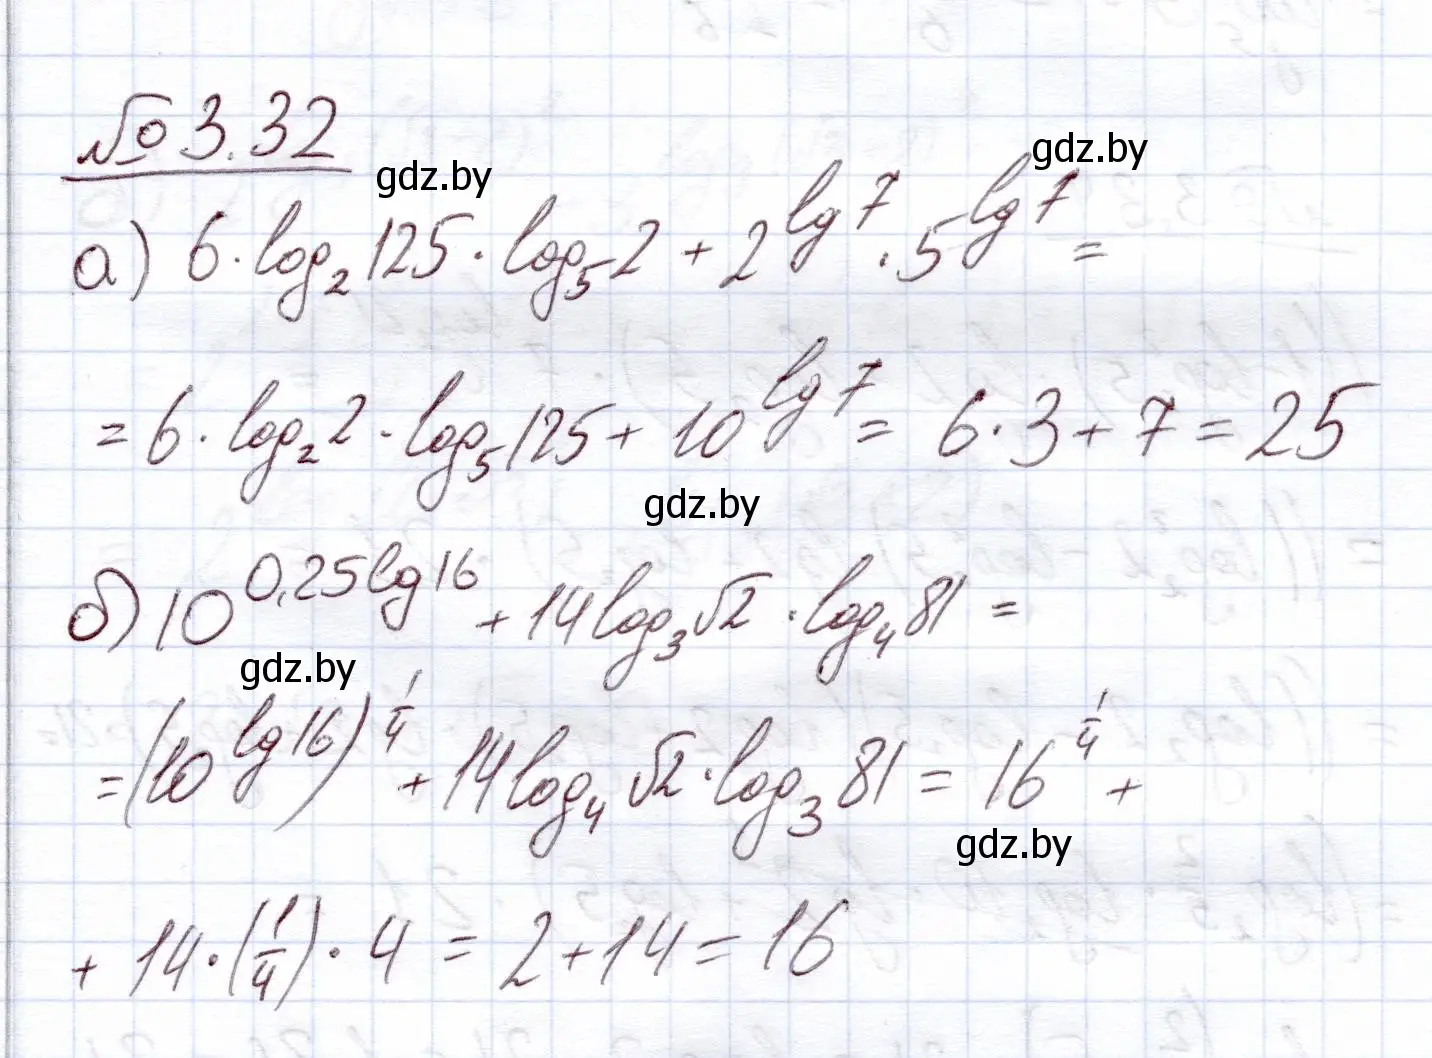 № 3.32
gdz.by
gdz.by
а) 6·log₂125·log₅2 + 2^(lg7)·5^(lg7) =
= 6·log₂2·log₅125 + 10^(lg7) = 6·3 + 7 = 25
gdz.by
б) 10^(0,25lg16) + 14log₃√2·log₄81 =
gdz.by
= (10^(lg16))^(1/4) + 14log₄√2·log₃81 = 16^(1/4) +
gdz.by
+ 14·(1/4)·4 = 2 + 14 = 16